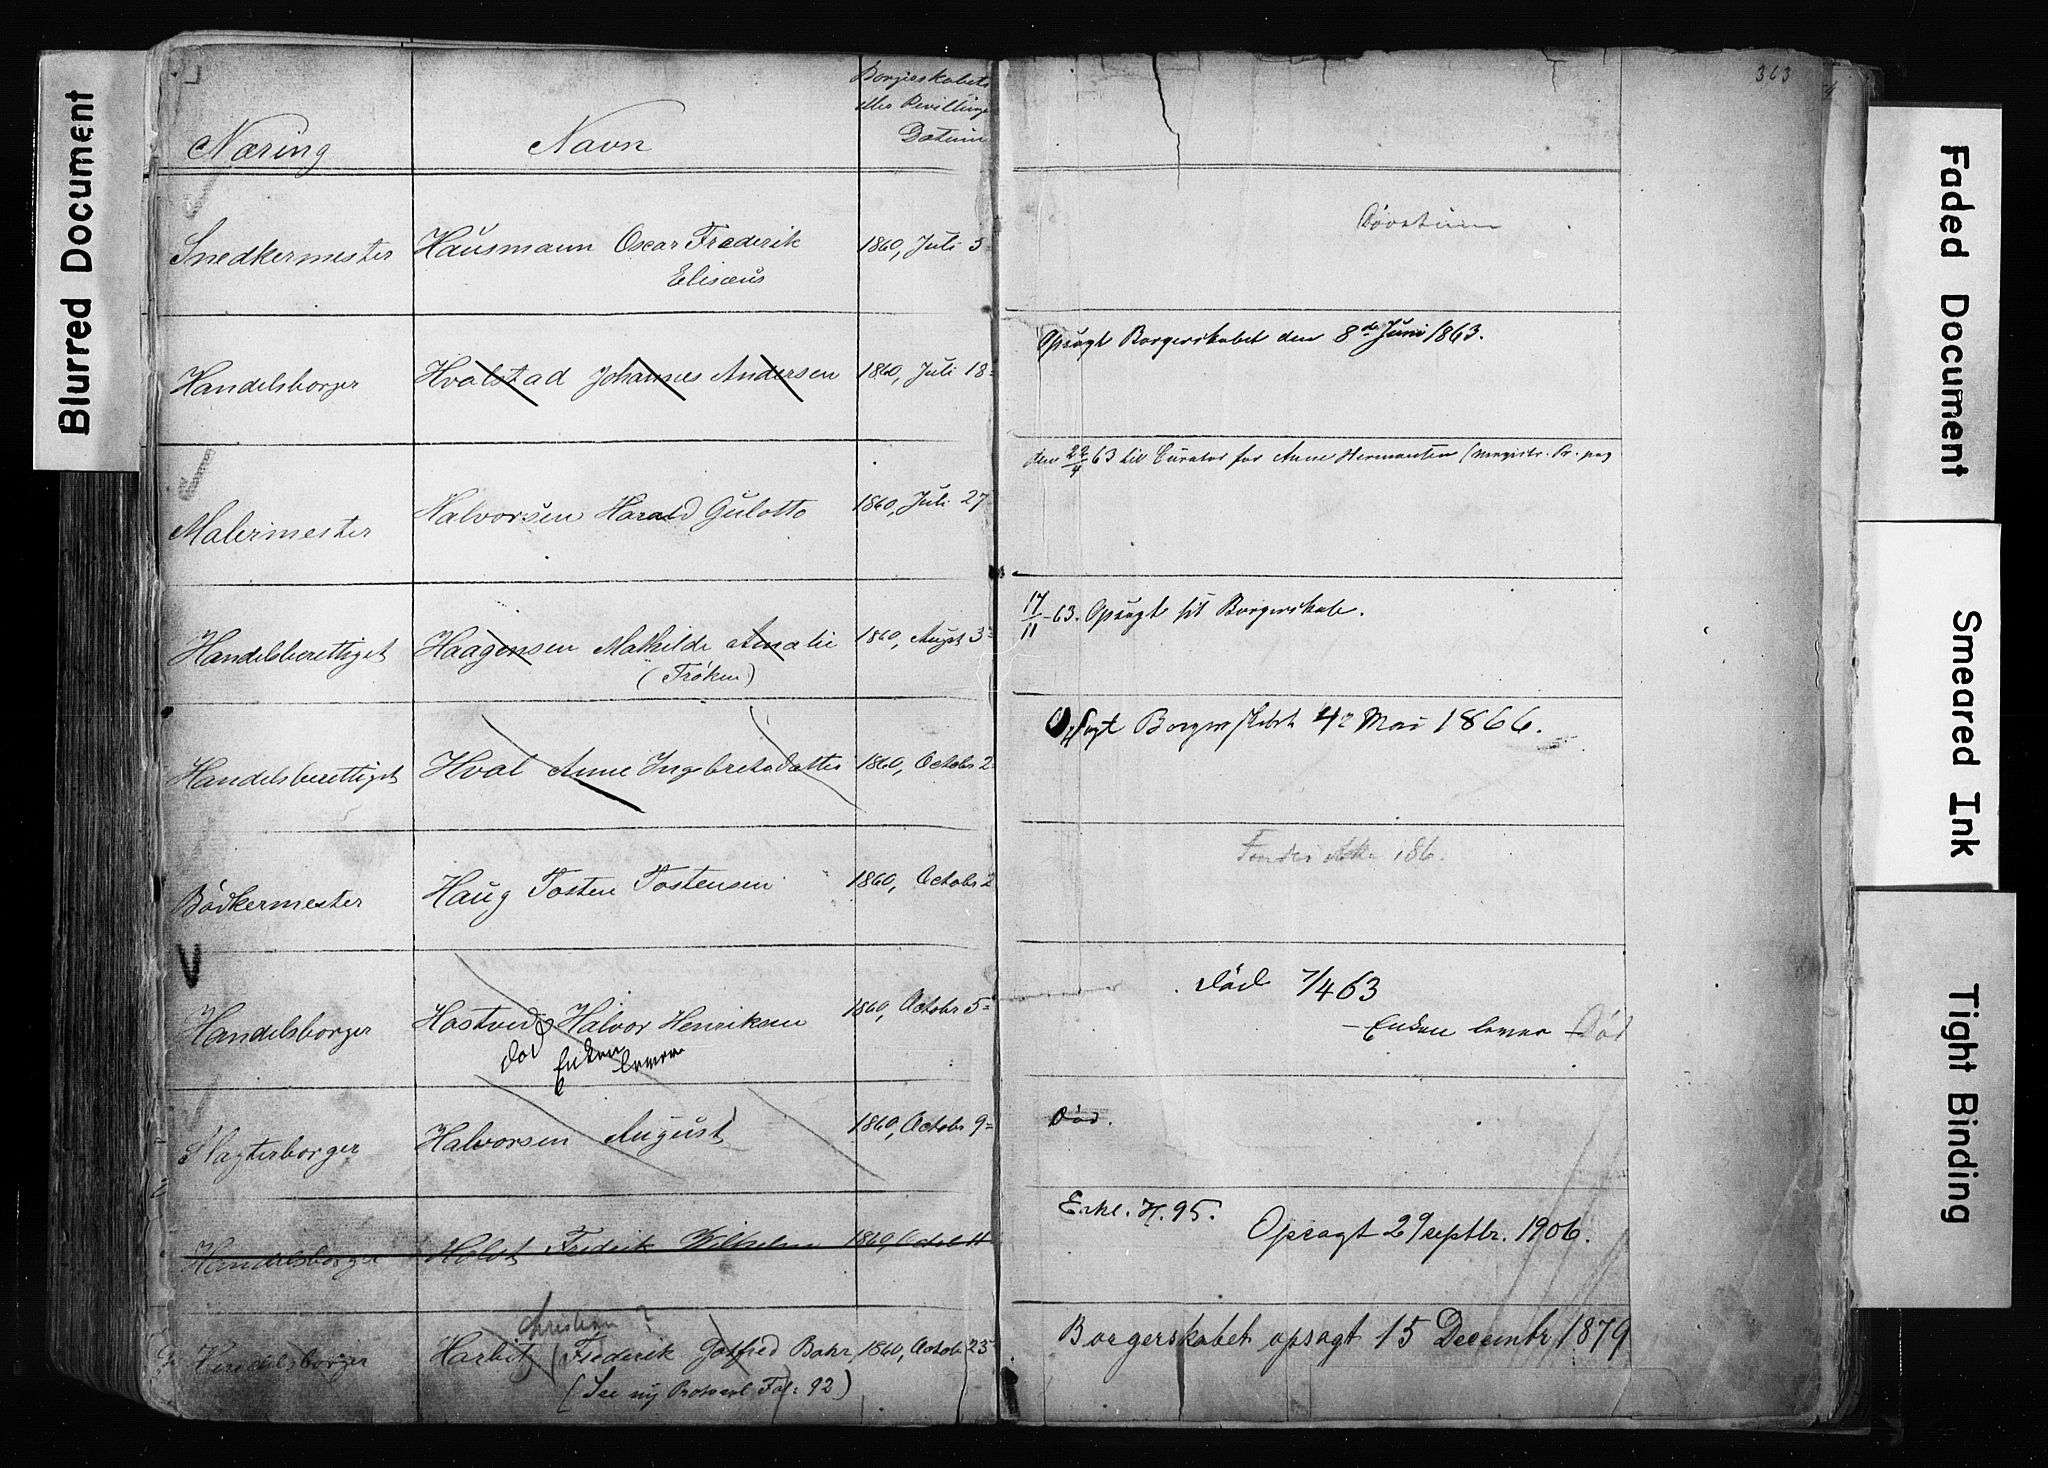 Blurred Document
Næring
Navn
Borgerskabets
eller Bevillings
Datum
Snedkermester
Hausmann Oscar Frederik
Elisæus
1860, Juli 3
Handelsborger
Hvalstad Johannes Andersen
1860, Juli 13
Malermester
Halvorsen Harald Gulotto
1860, Juli 27
Handelsberettiget
Haagensen Mathilde Amalie
(Frøken)
1860, August 3
Handelsberettiget
Hval Anne Ingebretsdatter
1860, Octobr 2
Bødkermester
Haug Tosten Tostensen
1860, Octobr 2
Handelsborger
Hostvedt Halvor Henriksen
død Enken lever
1860, Octobr 5
Slagterborger
Halvorsen August
1860, Octobr 9
Handelsborger
Holst Fredrik Wilhelm
1860, Octob 11
Christian ?
Handelsborger
Harbitz (Frederik Gotfred Bahr
1860, Octob. 23
(See ny Protocol Fol: 92)
363
Opsagt Borgerskabet den 8de Juni 1863.
den 22/4 63 til Curator for Anne Hermansen (magistr. Pr. pag
17/11-63. Opsagt sit Borgerskab.
Opsagt Borgerskabet 4 Mai 1866.
186
Død 7/4 63
- Enken lever - Død
Død.
Erkl. H. 95.
Opsagt 29 septbr. 1906.
Borgerskabet opsagt 15 Decembr 1879
Faded Document
Smeared Ink
Tight Binding